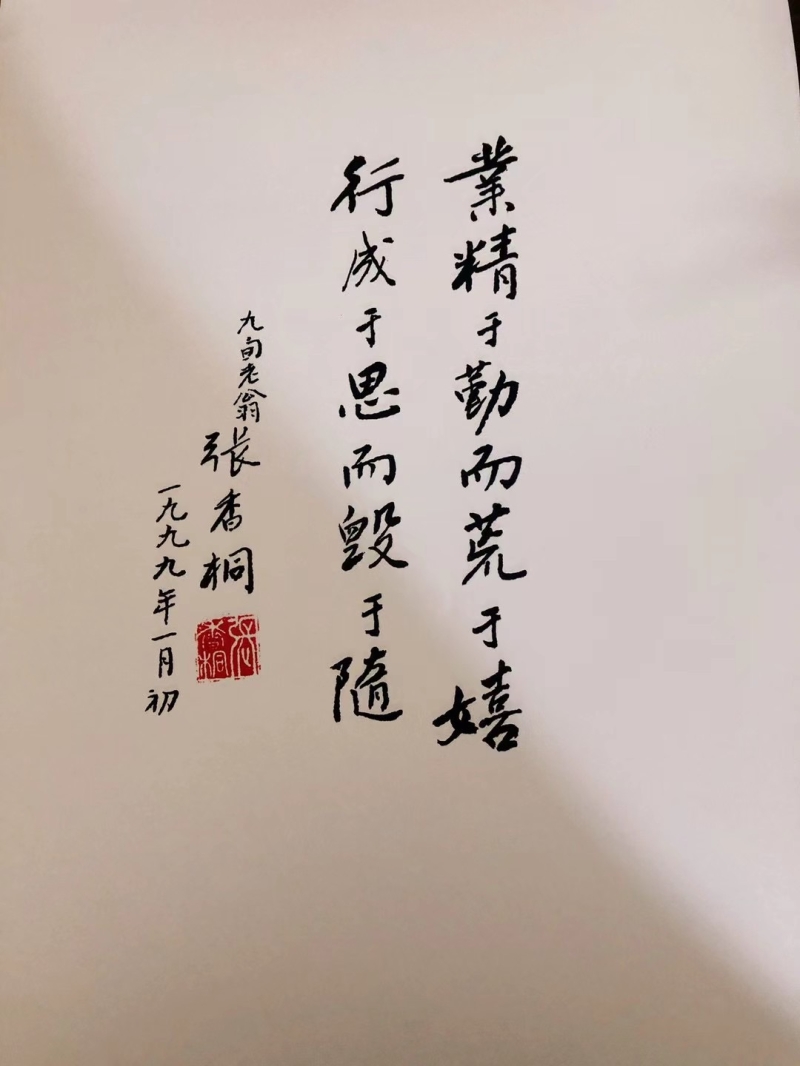 業精于勤而荒于嬉
行成于思而毀于隨
九旬老翁 張香桐
一九九九年一月初
張香桐